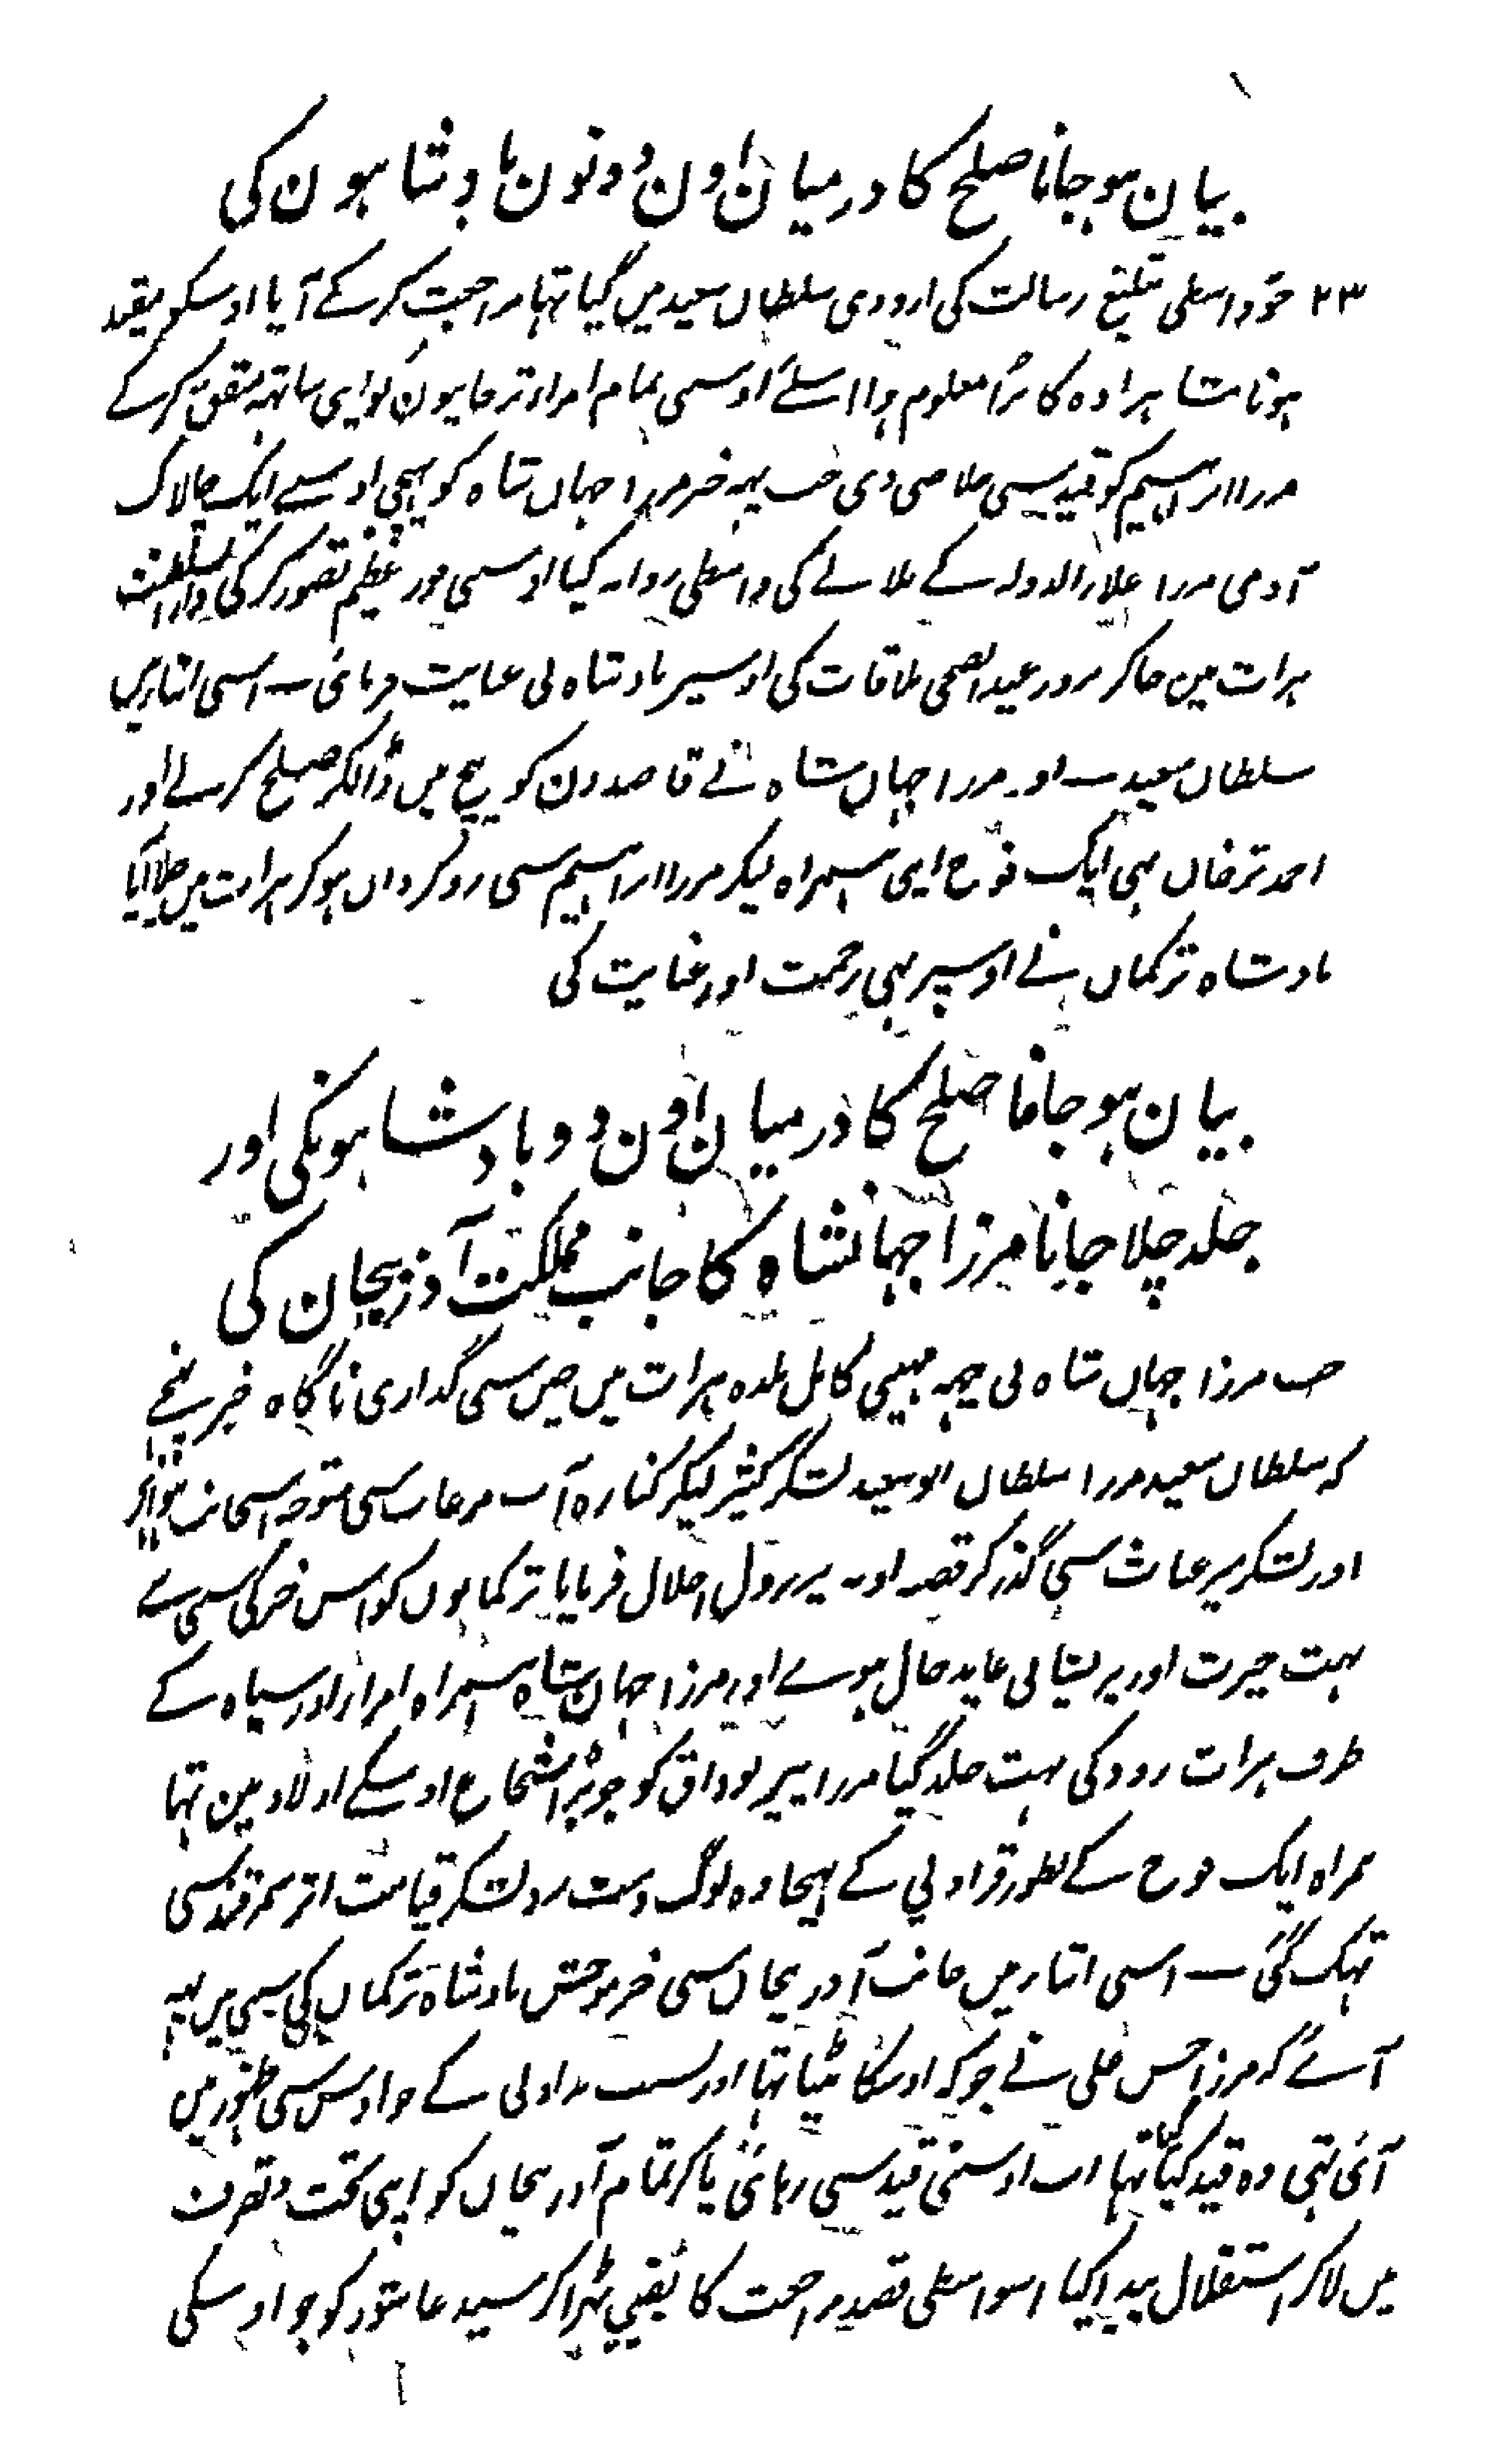 بیان ہوجانا صلح کا درمیان اون دونون بادشاہون کی
۲۳ جو واسطی تبلیغ رسالت کی اردوی سلطان سعید میں گیا تہا مراجعت کرکے آیا اوسکو مقید
ہونا شاہزادہ کا برا معلوم ہوا اسلئے اوسی تمام امرا و ترخانیون کو اپنی ساتہہ متفق کرکے
مرزا ابراہیم کو قید سی خلاصی دی جب یہہ خبر مرزا جہان شاہ کو پہنچی اوسنے ایک چالاک
آدمی مرزا علاء الدولہ کے بلانے کی واسطی روانہ کیا اوسی فوز عظیم تصور کر کی دار السلطنت
ہرات مین جاکر بروز عید الضحی ملاقات کی اوسپر بادشاہ نی عنایت فرمائی ۔ اسی اثنا میں
سلطان سعید اور مرزا جہاں شاہ نے قاصدون کو بیچ میں ڈالکر صلح کرلے اور
احمد ترخان بہی ایک فوج اپنی ہمراہ لیکر مرزا ابراہیم سی روگرداں ہوکر ہرات میں چلا آیا
بادشاہ ترکمان نے اوسپر بہی رحمت اور عنایت کی
بیان ہوجانا صلح کا درمیان اون دو بادشاہونکی اور
جلد چلا جانا مرزا جہانشاہ کا جانب مملکت آذربیجان کی
جب مرزا جہاں شاہ نی چہہ مہینی کامل بلدہ ہرات میں چین سی گذاری ناگاہ خبر پہنچے
کہ سلطان سعید مرزا سلطان ابوسعید لشکر کثیر لیکر کنارہ آب مرغاب سی متوجہ اس جانب ہوا
اور لشکر مرغاب سی گذر کر قصبہ اوبہ پر نزول اجلال فرمایا ترکمانوں کو اس خبر کی سسی
بہت حیرت اور پریشانی عاید حال ہوے اور مرزا جہان شاہ ہمراہ امرا اور سپاہ کے
طرف ہرات رود کی بہت جلد گیا مرزا پیر بوداق کو جو بڑا شجاع اوسکے اولاد مین تہا
ہمراہ ایک فوج کے بطور قراولی کے بہیجا وہ لوگ دست برد لشکر قیامت اثر سمرقند سی
تہک گئی ۔ اسی اثنا میں جانب آذربیجان سی خبر موحش بادشاہ ترکمان کی سنی میں یہہ
آئے کہ مرزا حسن علی نے جو کہ اوسکا بیٹا تہا اور بسبب بداولی کے جو اوس سی ظہور میں
آئی تہی وہ قید کیا گیا تہا اب اوسنی قید سی رہائی پا کر تمام آذربیجاں کو اپنی تحت و تصرف
میں لاکر استقلال پیدا کیا اسواسطی قصد مراجعت کا یقینی ٹہرا کر سید عاشور کو جو اوسکی